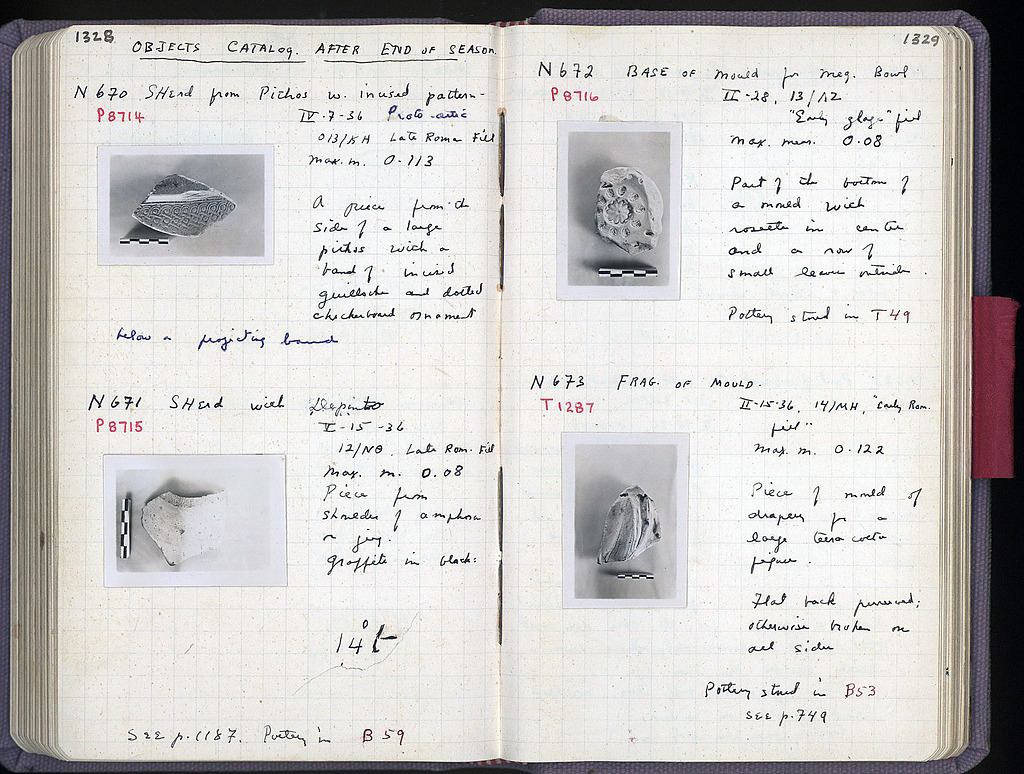 1328
OBJECTS CATALOG. AFTER END OF SEASON.
N 670 SHerd from Pithos w. incised pattern-
P8714 IV-7-36 Proto-attic
013/KH Late Roman Fill
max. m. 0.113
A piece from the
side of a large
pithos with a
band of incised
guilloche and dotted
checkerboard ornament
below a projecting band
N 671 SHerd with Depinto
P8715 V-15-36
12/NΘ. Late Rom. Fill
Max. m. 0.08
Piece from
shoulder of amphora
or jug.
graffite in black:
14
SEE p.1187. Pottery in B 59
1329
N 672 BASE OF mould for Meg. Bowl
P8716 II-28, 13/ΛΖ
"Early glaze" fill
max. meas. 0.08
Part of the bottom of
a mould with
rosette in centre
and a row of
small leaves outside.
Pottery stored in T 49
N 673 FRAG. OF MOULD.
T1287 II-15-36, 14/MH, "Early Rom.
fill"
Max. m. 0.122
Piece of mould of
drapery for a
large terra cotta
figure.
Flat back preserved;
otherwise broken on
all sides
Pottery stored in B53
SEE p.749